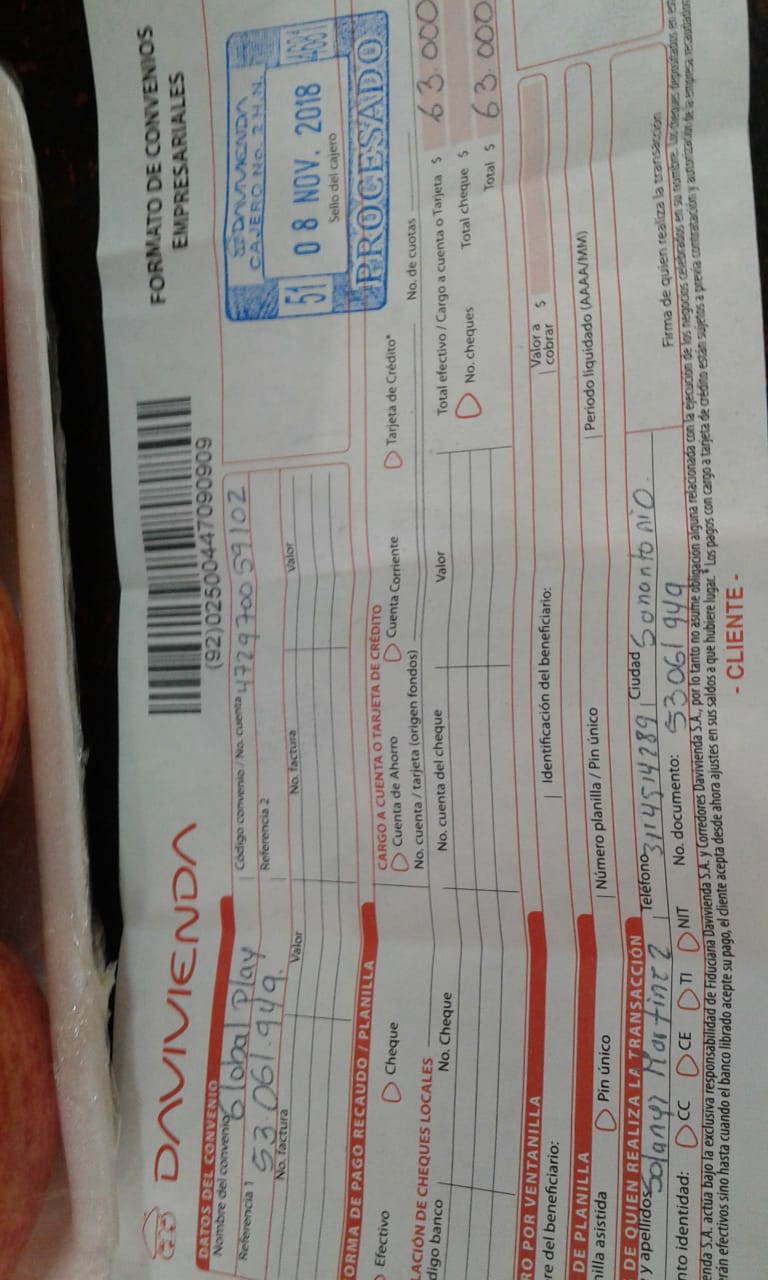 DAVIVIENDA
(92)02500447090909
FORMATO DE CONVENIOS
EMPRESARIALES
DATOS DEL CONVENIO
Nombre del convenio Global Play
Código convenio / No. cuenta 472970059102
Referencia 1 53.061.949.
Referencia 2
No. factura Valor No. factura Valor
DAVIVIENDA
CAJERO No. 2 H.N.
51 08 NOV. 2018 4681
Sello del cajero
PROCESADO
ORMA DE PAGO RECAUDO / PLANILLA
Efectivo Cheque
CARGO A CUENTA O TARJETA DE CRÉDITO
Cuenta de Ahorro Cuenta Corriente Tarjeta de Crédito*
No. cuenta / tarjeta (origen fondos) No. de cuotas
LACIÓN DE CHEQUES LOCALES
digo banco No. Cheque No. cuenta del cheque Valor
Total efectivo / Cargo a cuenta o Tarjeta $ 63.000
No. cheques Total cheque $
Total $ 63.000
RO POR VENTANILLA
re del beneficiario: Identificación del beneficiario: Valor a cobrar $
DE PLANILLA
nilla asistida Pin único Número planilla / Pin único Periodo liquidado (AAAA/MM)
DE QUIEN REALIZA LA TRANSACCIÓN
y apellidos Solangi Martinez Teléfono 3114514289 Ciudad Sanantonio.
nto identidad: CC CE TI NIT No. documento: 53061949
Firma de quien realiza la transacción
enda S.A. actúa bajo la exclusiva responsabilidad de Fiduciaria Davivienda S.A. y Corredores Davivienda S.A., por lo tanto no asume obligación alguna relacionada con la ejecución de los negocios celebrados en su nombre. Los cheques depositados en est
rán efectivos sino hasta cuando el banco librado acepte su pago, el cliente acepta desde ahora ajustes en sus saldos a que hubiere lugar. * Los pagos con cargo a tarjeta de crédito están sujetos a previa contratación y autorización de la empresa recaudadora
- CLIENTE -